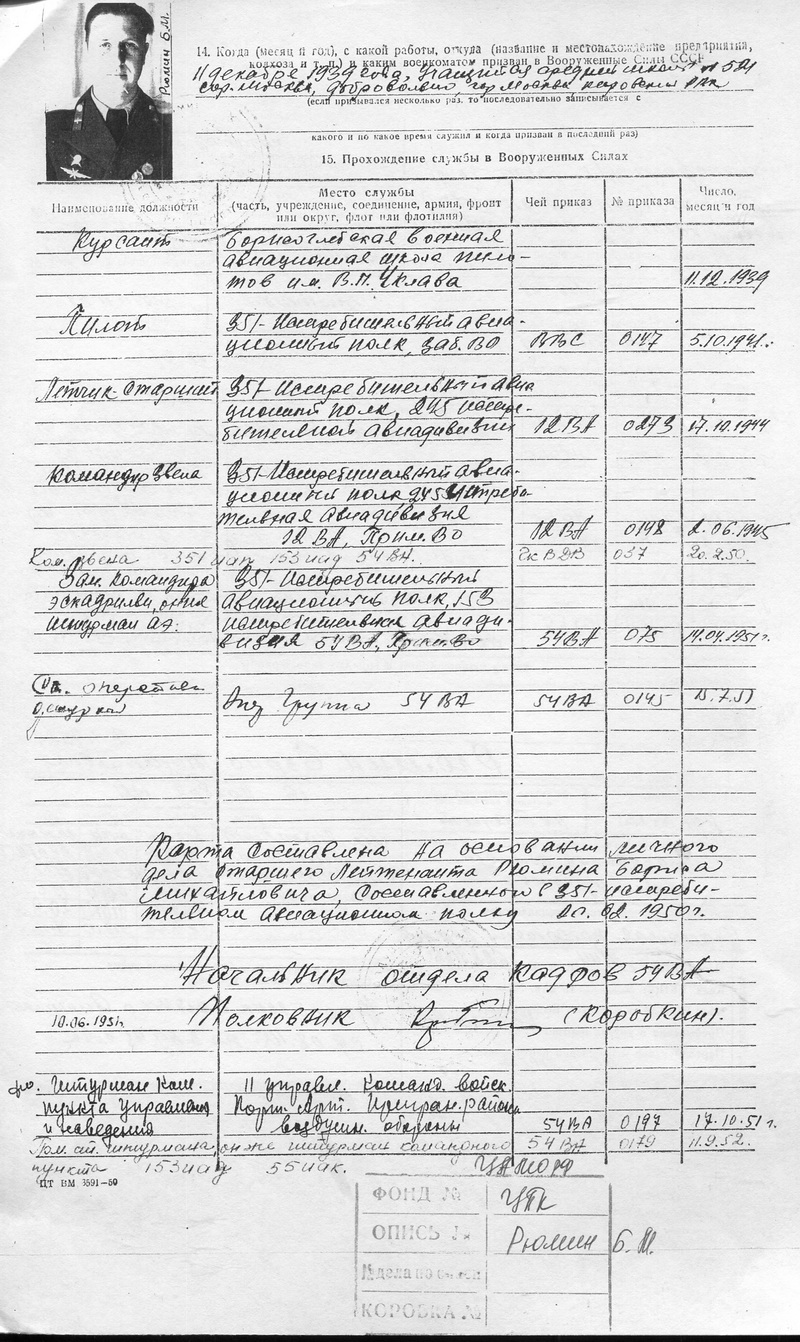 Рюмин Б.М.
14. Когда (месяц и год), с какой работы, откуда (название и местонахождение предприятия,
колхоза и т. п.) и каким военкоматом призван в Вооруженные Силы СССР
11 декабря 1939 года, учащийся средней школы №
гор. Москва, добровольно, гор Москва РВК
(если призывался несколько раз, то последовательно записывается с
какого и по какое время служил и когда призван в последний раз)
15. Прохождение службы в Вооруженных Силах
Наименование должности
Место службы
(часть, учреждение, соединение, армия, фронт
или округ, флот или флотилия)
Чей приказ
№ приказа
Число,
месяц и год
Курсант
Борисоглебская военная
авиационная школа пило-
тов им. В.П. Чкалова 11.12.1939
Пилот
351-Истребительный авиа-
ционный полк, Заб.ВО ВВС 0147 5.10.1941г.
Летчик-старший 351-Истребительный авиа
ционный полк, 245 истре-
бительной авиадивизии 12 ВА 0273 17.10.1944
Командир звена 351-Истребительный авиа-
ционный полк 245 истреби
тельная авиадивизия
12 ВА, Прим.Во 12 ВА 0148 2.06.1945
Ком. звена 351 иап 153 иад 54 ВА. 037 20.2.50.
Зам. командира 351-Истребительный
эскадрильи, он же авиационный полк, 153
штурман аэ. истребительная авиади-
визия 54 ВА, Прим.Во 54 ВА 075 14.04.1951г.
дежурный
Опер Группа 54 ВА 54 ВА 0145 15.7.51
Карта составлена на основании личного
дела старшего лейтенанта Рюмина Бориса
Михайловича, составленного в 351-истреби-
тельном авиационном полку 02. 1950г.
Начальник отдела кадров 54 ВА
10.06.1951г. Полковник (Коробкин).
Штурман Ком. 11 управл. команд. войск.
пункта управления Порт. Арт. Пригран. района
и наведения воздушн. обороны 54 ВА 0197 17.10.51г.
Пом. ст. штурмана, он же штурман командного 54 ВА 0179 11.9.52.
пункта 153 иад 55 иак.
ЦТ ВМ 3591—50
ЦАМО РФ
ФОНД № ЦПК
ОПИСЬ № Рюмин Б. М.
№ дела по описи
КОРОБКА №